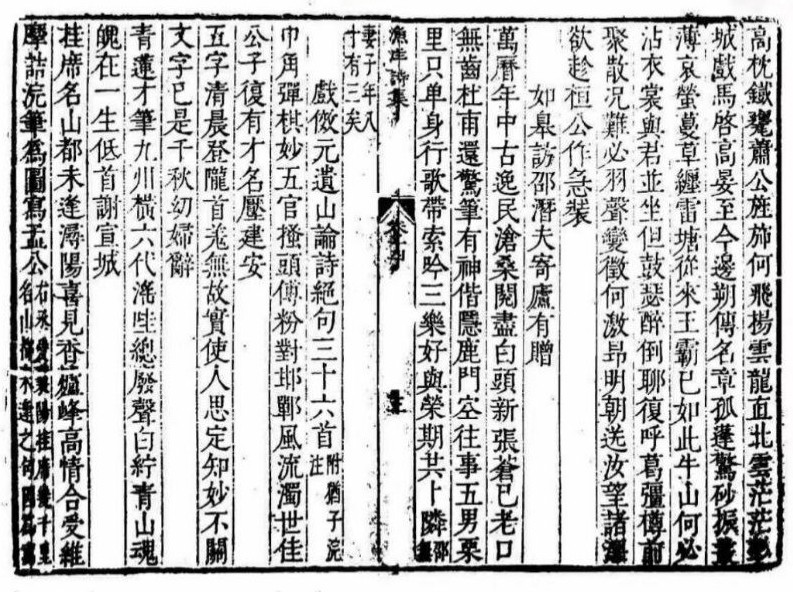 高枕鐵甕蕭公旌斾何飛揚雲龍直北雲茫茫
城戲馬啓高晏至今邊朔傳名章孤蓬驚砂振
薄哀螢蔓草纏雷塘從來王霸已如此牛山何必
沾衣裳與君並坐但鼓瑟醉倒聊復呼葛彊樽前
聚散况難必羽聲變徵何激昂明朝送汝望諸澤
欲趁桓公作急裝
如皋訪邵潛夫寄廬有贈
萬曆年中古逸民滄桑閱盡白頭新張蒼已老口
無齒杜甫還驚筆有神偕隱鹿門空往事五男栗
里只单身行歌帶索吟三樂好與榮期共卜隣邵
妻子年八
十有三矣
漁洋詩集
戲倣元遺山論詩絕句三十六首附猶子浣註
巾角彈棋妙五官搔頭傅粉對邯鄲風流濁世佳
公子復有才名壓建安
五字清晨登隴首羗無故實使人思定知妙不關
文字已是千秋幼婦辭
青蓮才筆九州橫六代淫哇總廢聲白紵青山魂
魄在一生低首謝宣城
挂席名山都未逢潯陽喜見香爐峰高情合受維
摩詰浣筆為圖寫孟公右丞愛襄陽挂席幾千里
名山都未逢之句因爲寫